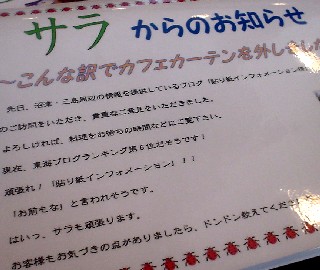 サラ からのお知らせ
～こんな訳でカフェカーテンを外しました
先日、沼津・三島周辺の情報を提供しているブログ「貼り紙インフォメーション
のご訪問をいただき、貴重なご意見をいただきました。
よろしければ、料理をお待ちの時間などにご覧下さい。
現在、東海ブログランキング第6位だそうです！
頑張れ！「貼り紙インフォメーション」！！
「お前もな」と言われそうです。
はいっ、サラも頑張ります。
お客様もお気づきの品がありましたら、ドンドン教えてくださ